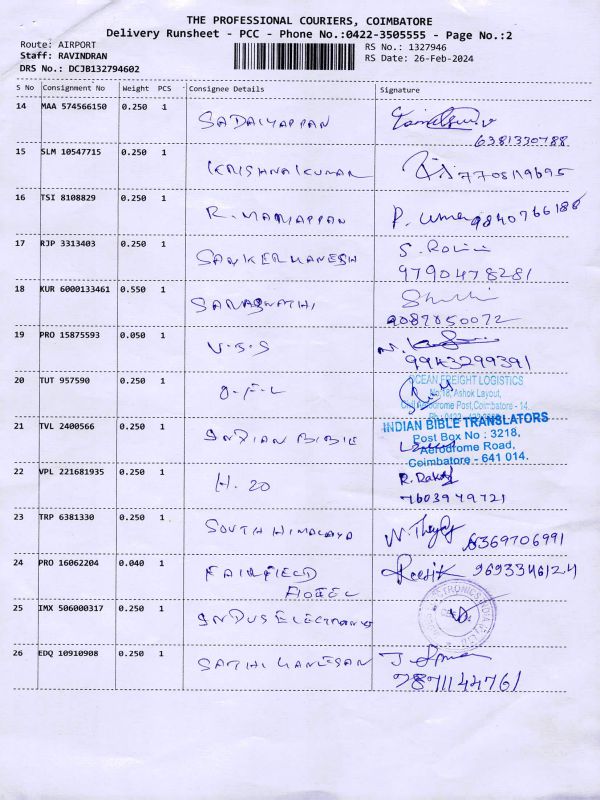 THE PROFESSIONAL COURIERS, COIMBATORE
Delivery Runsheet - PCC - Phone No.:0422-3505555 - Page No.:2
Route: AIRPORT
Staff: RAVINDRAN
DRS No.: DCJB132794602
RS No.: 1327946
RS Date: 26-Feb-2024
S No Consignment No Weight PCS Consignee Details Signature
14 MAA 574566150 0.250 1 SADAIYAPPAN
6381330788
15 SLM 10547715 0.250 1 KRISHNAKUMAR 7708119695
16 TSI 8108829 0.250 1 R. MARIAPPAN P. Uma 9840766188
17 RJP 3313403 0.250 1 SANKERGANESH S. Rohini
9790478281
18 KUR 6000133461 0.550 1 SARASWATHI
9087850072
19 PRO 15875593 0.050 1 V.S.S
9943299391
20 TUT 957590 0.250 1 O.F.L
OCEAN FREIGHT LOGISTICS
No.18, Ashok Layout,
Civil Aerodrome Post, Coimbatore - 14.
21 TVL 2400566 0.250 1 INDIAN BIBLE
INDIAN BIBLE TRANSLATORS
Post Box No : 3218,
Aerodrome Road,
Coimbatore - 641 014.
22 VPL 221681935 0.250 1 H. 20 R.
7603979721
23 TRP 6381330 0.250 1 SOUTH HIMALAYA 6369706991
24 PRO 16062204 0.040 1 FAIRFIELD 9693346124
HOTEL
25 IMX 506000317 0.250 1 INDUS ELECTRONICS
26 EDQ 10910908 0.250 1 SATHI GANESAN
9871144761